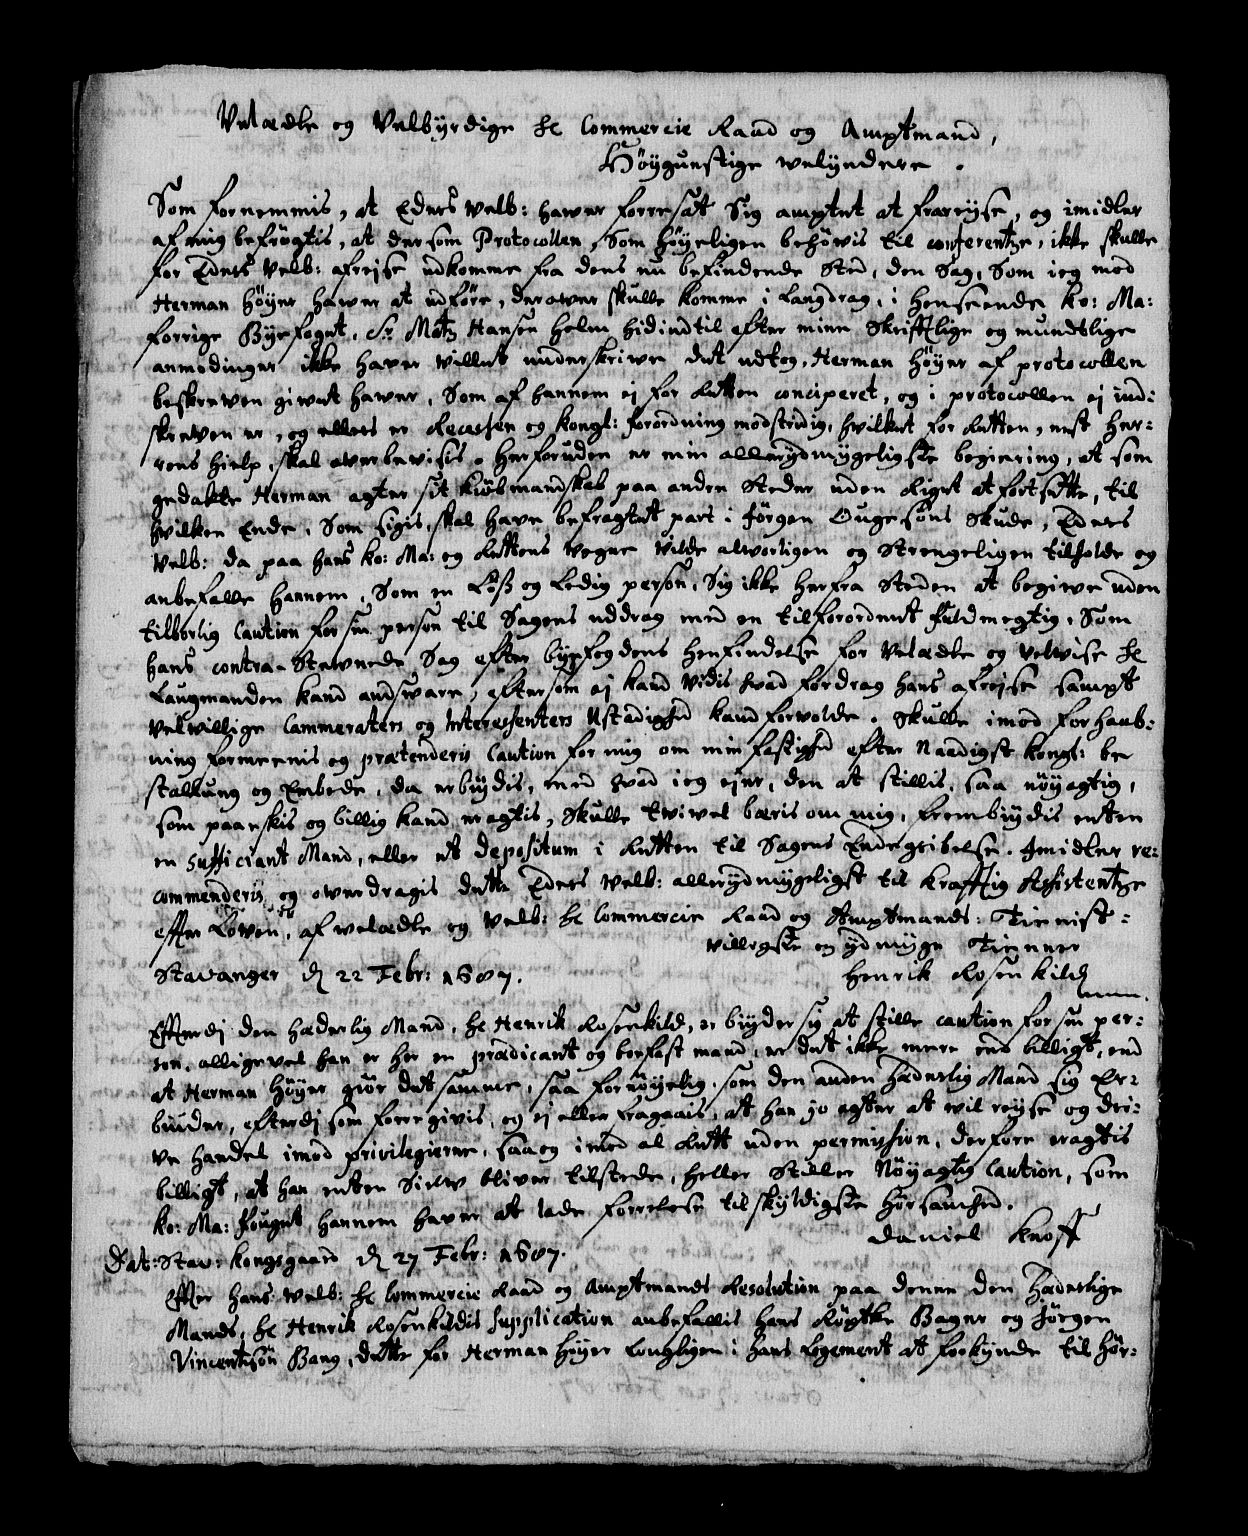 Velædle og Velbyrdige Hr Commercie Raad og Amptmand,
Höygunstige welyndere.
Som fornemmis, at Eders Velb: hawer forresatt Sig amptet at frareyse, og imidler
af mig befrögtis, at dersom Protocollen, Som höyeligen behöwis til conferentze, ikke skulle
for Eders Velb: afrejse udkomme fra dens nu befindende Sted, den Sag, Som ieg mod
Herman Höyer hawer at udföre, derower skulle komme i Langdrag, i henseende ko: Ma:
forrige Byefogt, Sr Matz Hansen Holm hidindtil efter mine Skrifftlige og mundtlige
anmodinger ikke haver villet underskriwe det udtog, Herman Höyer af protocollen
beskrewen giwet hawer, Som af hannem ej for Retten conciperet, og i protocollen ej ind-
skrewen er, og ellers er Recessen og kongl: forordning modstridig, hvilket for Retten, nest Her-
rens hielp, skal overbevisis. Herforuden er min allerydmygeligste begiering, at som
gedakte Herman agter sit kiöbmandskab paa anden Steder uden Riget at fortsette, til
hwilken Ende, Som sigis, skal have befragtet part i Jörgen Ougesöns Skude, Eders
Velb: da paa hans ko: Ma: og Rettens vegne vilde alvorligen og Strengeligen tilholde og
anbefalle hannem, Som en Löß og Ledig person, Sig ikke herfra Steden at begiwe uden
tilborlig Caution for sin person til Sagens uddrag med en tilforordnet fuldmegtig, Som
hans contra-Stewnede Sag efter byefogdens henfindelse for Velædle og velwise Hr
Laugmanden kand andsware, eftersom ej kand vidis hvad fordrag hans afrejse sampt
velwillige Cammeraters og Interessenters Ustadighed kand forvolde. Skulle imod forhaab-
ning formeenis og prætenderis Caution for mig om min fastighed efter Naadigst kongl: be
stalling og Embede, da erbydis, med hvad ieg ejer, den at stillis, saa nöyagtig,
som paaeskis og billig kand eragtis, Skulle twiwel bæris om mig, frembydis enten
en Sufficiant Mand, eller et depositum i Retten til Sagens Endeskibelse. Imidler re-
commenderis og overdragis dette Eders Velb: allerydmygeligst til krafftig Assistentze
effter Loven, af welædle og Velb: Hr Commercie Raad og Amptmands: Tienist-
villigste og ydmyge Tienner
Stavanger d 22 Febr: 1687.
Henrik Rosenkild
Efterdj den hæderlig Mand, Hr Henrik Rosenkild, erbyder sig at stille caution for sin per-
son, alligevel han er her en prædicant og boefast mand, er det ikke mere end billigt, end
at Herman Höyer giör det samme, saa fornöyelig, som den anden hæderlig Mand sig er-
buder, efterdj som forregivis, og ej eller fragaais, at han jo agter at vil reyse og dri-
ve handel imod privilegierne, saa og imod al Rett uden permission, derfore eragtis
billigt, at han enten Sielw bliver tilstede, heller Stiller Nöyagtig Caution, som
ko: Ma: fougt hannem haver at lade forrelese til skyldigste hörsamhed.
Daniel Knoff
Dat: Stav: kongsgaard d 27 Febr: 1687.
Effter hans velb: Hr Commercie Raad og Amptmands Resolution paa denne den Hæderlige
Mands, Hr Henrik Rosenkildis Supplication anbefallis Hans Röytke Bager og Jörgen
Vincentsön Bang, dette for Herman Höyer lougligen i hans Logement at forkynde til hör-